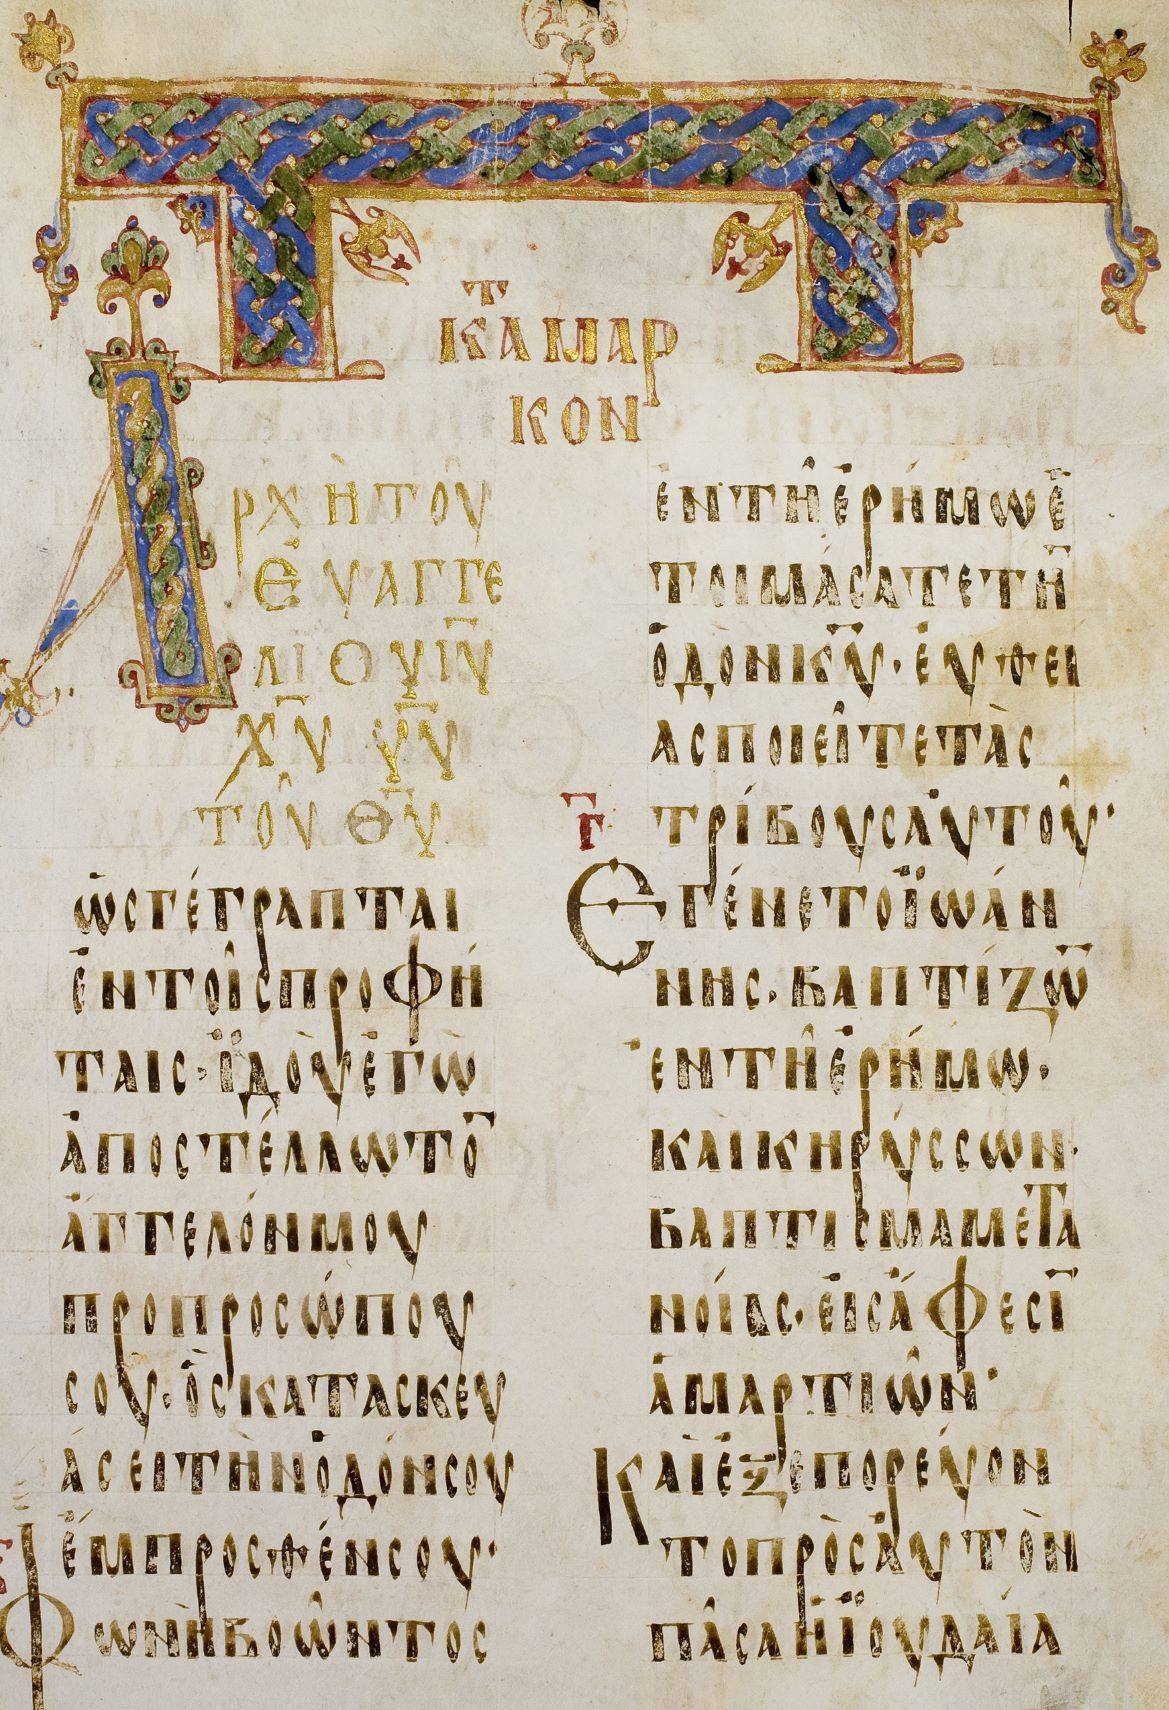 κ̅α̅τ̅ Μάρ
κον
Ἀρχὴ τοῦ
εὐαγγε
λίου ι̅υ̅
χ̅υ̅ υ̅υ̅
τοῦ θ̅υ̅
ὡς γέγραπται
ἐν τοῖς προφή
ταις· ἰδοὺ ἐγὼ
ἀποστέλλω το̅
ἄγγελόν μου
πρὸ προσώπου
σου· ὃς κατασκευ
άσει τὴν ὁδόν σου
ἔμπροσθέν σου·
Φωνὴ βοῶντος
ἐν τῇ ἐρήμω ἑ
τοιμάσατε τη̅
ὁδὸν κ̅υ̅· εὐθεί
ας ποιεῖτε τὰς
γ̅ τρίβους αὐτοῦ·
Ἐγένετο Ἰωάν
νης· βαπτίζω̅
ἐν τῇ ἐρήμω·
καὶ κηρύσσων·
βάπτισμα μετα
νοίας· εἰς ἄφεσι̅
ἁμαρτιῶν·
Καὶ ἐξεπορεύον
το πρὸς αὐτὸν
πᾶσα ἡ Ἰουδαία